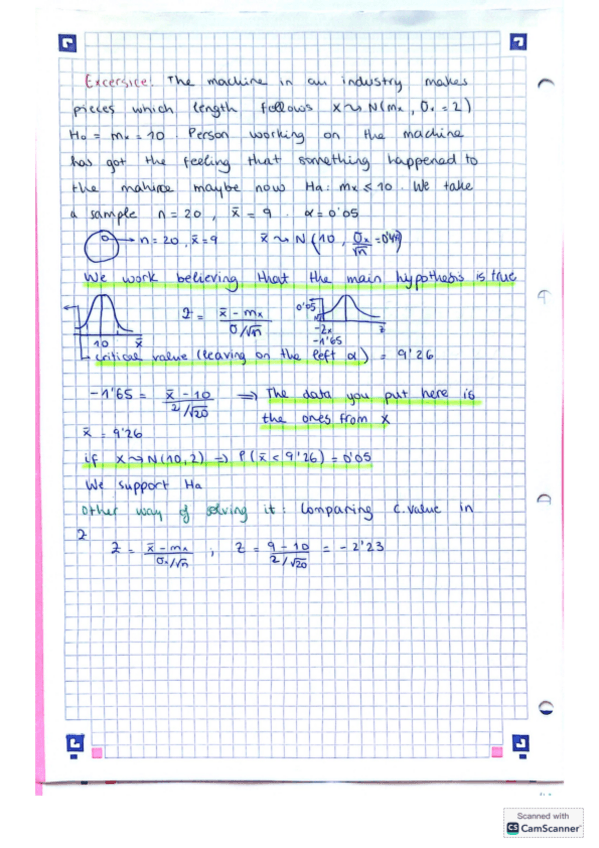 Excersice: The machine in an industry makes
pieces which length follows x ~ N(mx, σx = 2)
H0 = mx = 10. Person working on the machine
has got the feeling that something happened to
the mahine maybe now Ha: mx < 10. We take
a sample n = 20, x̄ = 9. α = 0'05
n = 20, x̄ = 9 x̄ ~ N(10, σx/√n
We work believing that the main hypothesis is true
z = x̄ - mx / σ/√n
0'05
10 x̄
-1'65
z
critical value (leaving on the left α) = 9'26
-1'65 = x̄ - 10 / 2/√20 ⇒ The data you put here is
the ones from x
x̄ = 9'26
if x ~ N(10, 2) ⇒ P(x̄ < 9'26) = 0'05
We support Ha
Other way of solving it: Comparing c.value in
z
z = x̄ - mx / σx/√n ; z = 9 - 10 / 2/√20 = -2'23
Scanned with
CS CamScanner